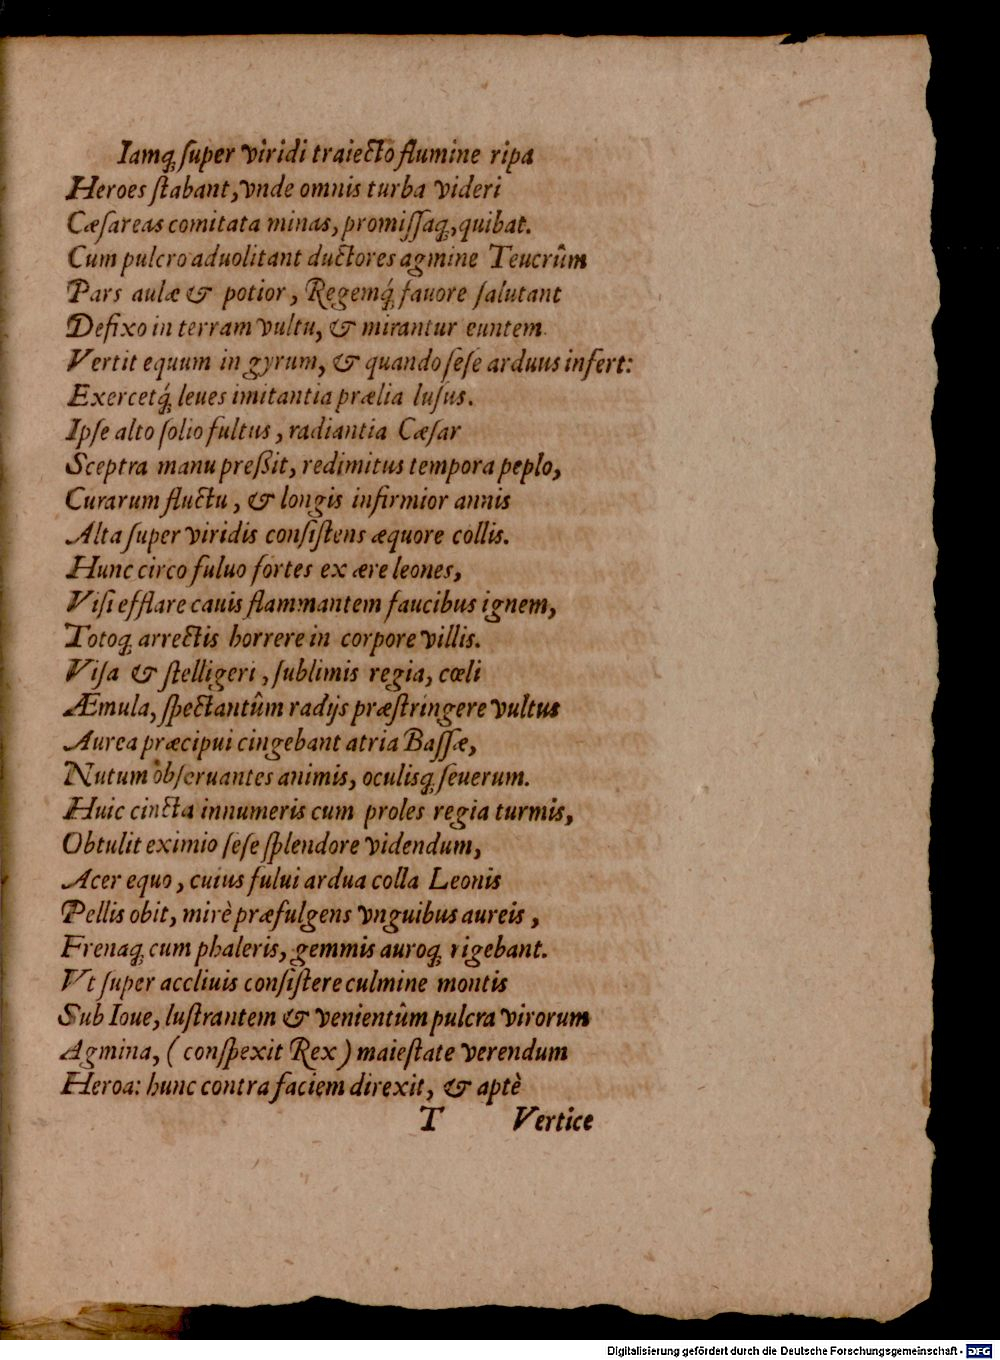 Iamq́ ſuper viridi traiecto flumine ripa
Heroes ſtabant, vnde omnis turba videri
Cæſareas comitata minas, promiſſaq́, quibat.
Cum pulcro aduolitant ductores agmine Teucrûm
Pars aulæ & potior, Regemq́ fauore ſalutant
Defixo in terram vultu, & mirantur euntem.
Vertit equum in gyrum, & quando ſeſe arduus infert:
Exercetq́ leues imitantia prælia luſus.
Ipſe alto ſolio fultus, radiantia Cæſar
Sceptra manu preßit, redimitus tempora peplo,
Curarum fluctu, & longis infirmior annis
Alta ſuper viridis conſiſtens æquore collis.
Hunc circo fuluo fortes ex ære leones,
Viſi efflare cauis flammantem faucibus ignem,
Totoq́ arrectis horrere in corpore villis.
Viſa & ſtelligeri, ſublimis regia, cœli
Æmula, ſpectantûm radijs præſtringere vultus
Aurea præcipui cingebant atria Baſſæ,
Nutum obſeruantes animis, oculisq́ ſeuerum.
Huic cincta innumeris cum proles regia turmis,
Obtulit eximio ſeſe ſplendore videndum,
Acer equo, cuius fului ardua colla Leonis
Pellis obit, mirè præfulgens vnguibus aureis,
Frenaq́ cum phaleris, gemmis auroq́ rigebant.
Vt ſuper accliuis conſiſtere culmine montis
Sub Ioue, luſtrantem & venientûm pulcra virorum
Agmina, (conſpexit Rex) maieſtate verendum
Heroa: hunc contra faciem direxit, & aptè
T Vertice
Digitalisierung gefördert durch die Deutsche Forschungsgemeinschaft - DFG